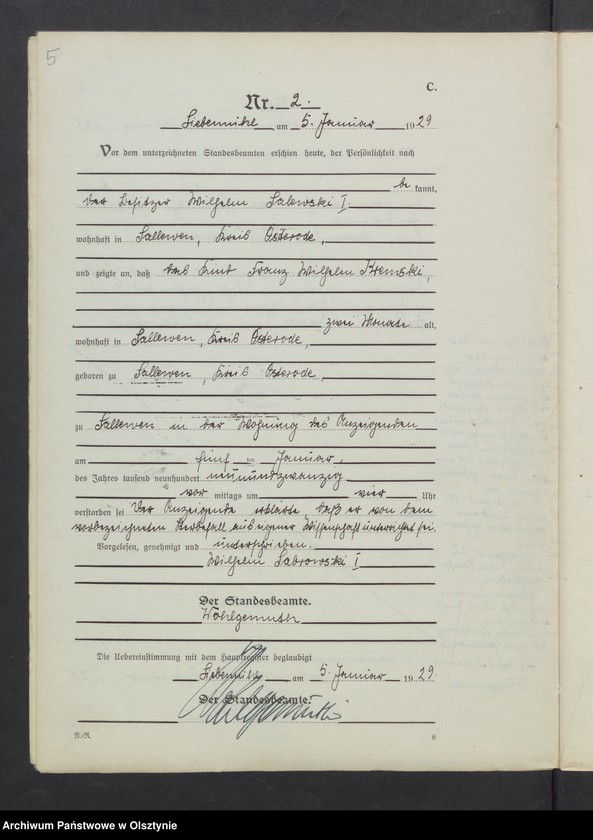 5
C.
Nr. 2.
Liebemühl am 5. Januar 1929
Vor dem unterzeichneten Standesbeamten erschien heute, der Persönlichkeit nach
be kannt,
der Besitzer Wilhelm I.
wohnhaft in Sallewen, Kreis Osterode,
und zeigte an, daß das Kind Franz Wilhelm Kremski,
zwei Monate alt,
wohnhaft in Sallewen, Kreis Osterode,
geboren zu Sallewen, Kreis Osterode,
zu Sallewen in der Wohnung des Anzeigenden
am fünf ten Januar,
des Jahres tausend neunhundert neunundzwanzig
vor mittags um vier Uhr
verstorben sei Der Anzeigende erklärte, daß er von dem
vorbezeichneten Sterbefall aus eigener Wissenschaft unterrichtet sei.
Vorgelesen, genehmigt und unterschrieben.
Wilhelm I
Der Standesbeamte.
Wohlgemuth
Die Uebereinstimmung mit dem Hauptregister beglaubigt
Liebemühl am 5. Januar 1929.
Der Standesbeamte.
6
Archiwum Państwowe w Olsztynie